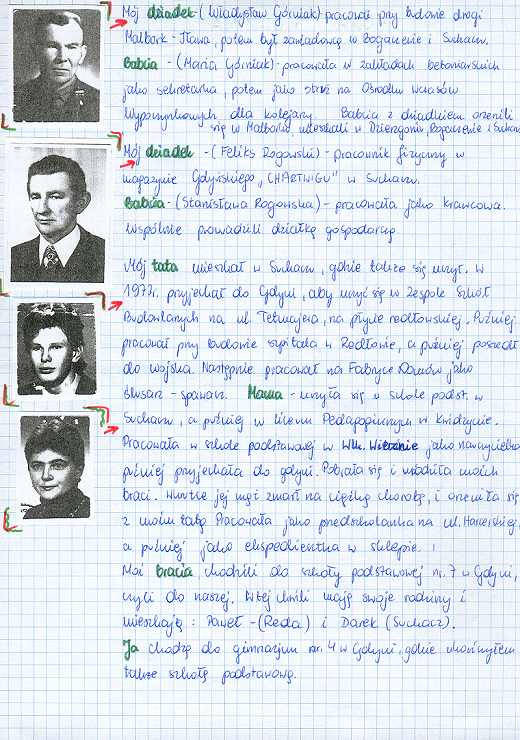 Mój dziadek - (Władysław Górniak) pracował przy budowie drogi
Malbork - Iława, potem był zawiadowcą w Bogaczewie i Suchaczu.
Babcia - (Maria Górniak) - pracowała w zakładach betoniarskich
jako sekretarka, potem jako stróż na Ośrodku wczasów
Wypoczynkowych dla kolejarzy Babcia z dziadkiem ożenili
się w Malborku mieszkali w Dzierzgoniu, Bogaczewie i Suchaczu
Mój dziadek - (Feliks Rogowski) - pracownik fizyczny w
magazynie Gdyńskiego "CHARTWIGU" w Suchaczu.
Babcia - (Stanisława Rogowska) - pracowała jako krawcowa.
Wspólnie prowadzili działkę gospodarczą
Mój tata mieszkał w Suchaczu, gdzie także się uczył. W
przyjechał do Gdyni, aby uczyć się w Zespole Szkół
Budowlanych na ul. Tetmajera, na płycie redłowskiej. Później
pracował przy budowie szpitala w Redłowie, a później poszedł
do wojska. Następnie pracował na Fabryce Domów jako
ślusarz - spawacz. Mama - uczyła się w szkole podst. w
Suchaczu, a później w liceum Pedagogicznym w Kwidzynie.
Pracowała w szkole podstawowej w jako nauczycielka
później przyjechała do Gdyni. Pobrała się i urodziła moich
braci. Wkrótce jej mąż zmarł na ciężką chorobę, i ożeniła się
z moim tatą Pracowała jako przedszkolanka na ul. Harcerskiej,
a później jako ekspedientka w sklepie.
Moi bracia chodzili do szkoły podstawowej nr. 7 w Gdyni,
czyli do naszej. W tej chwili mają swoje rodziny i
mieszkają: Paweł - (Reda) i Darek (Suchacz).
Ja chodzę do gimnazjum nr. 4 w Gdyni, gdzie ukończyłem
także szkołę podstawową.